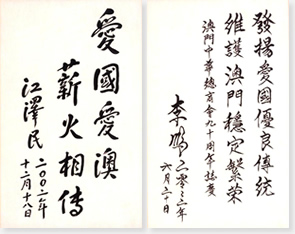 愛國愛澳
薪火相传
江澤民
二〇〇二年
十二月十八日
發揚愛國優良傳統
維護澳門穩定繁荣
澳門中華總商會九十周年誌慶
李鵬
二〇〇三年
六月二十日